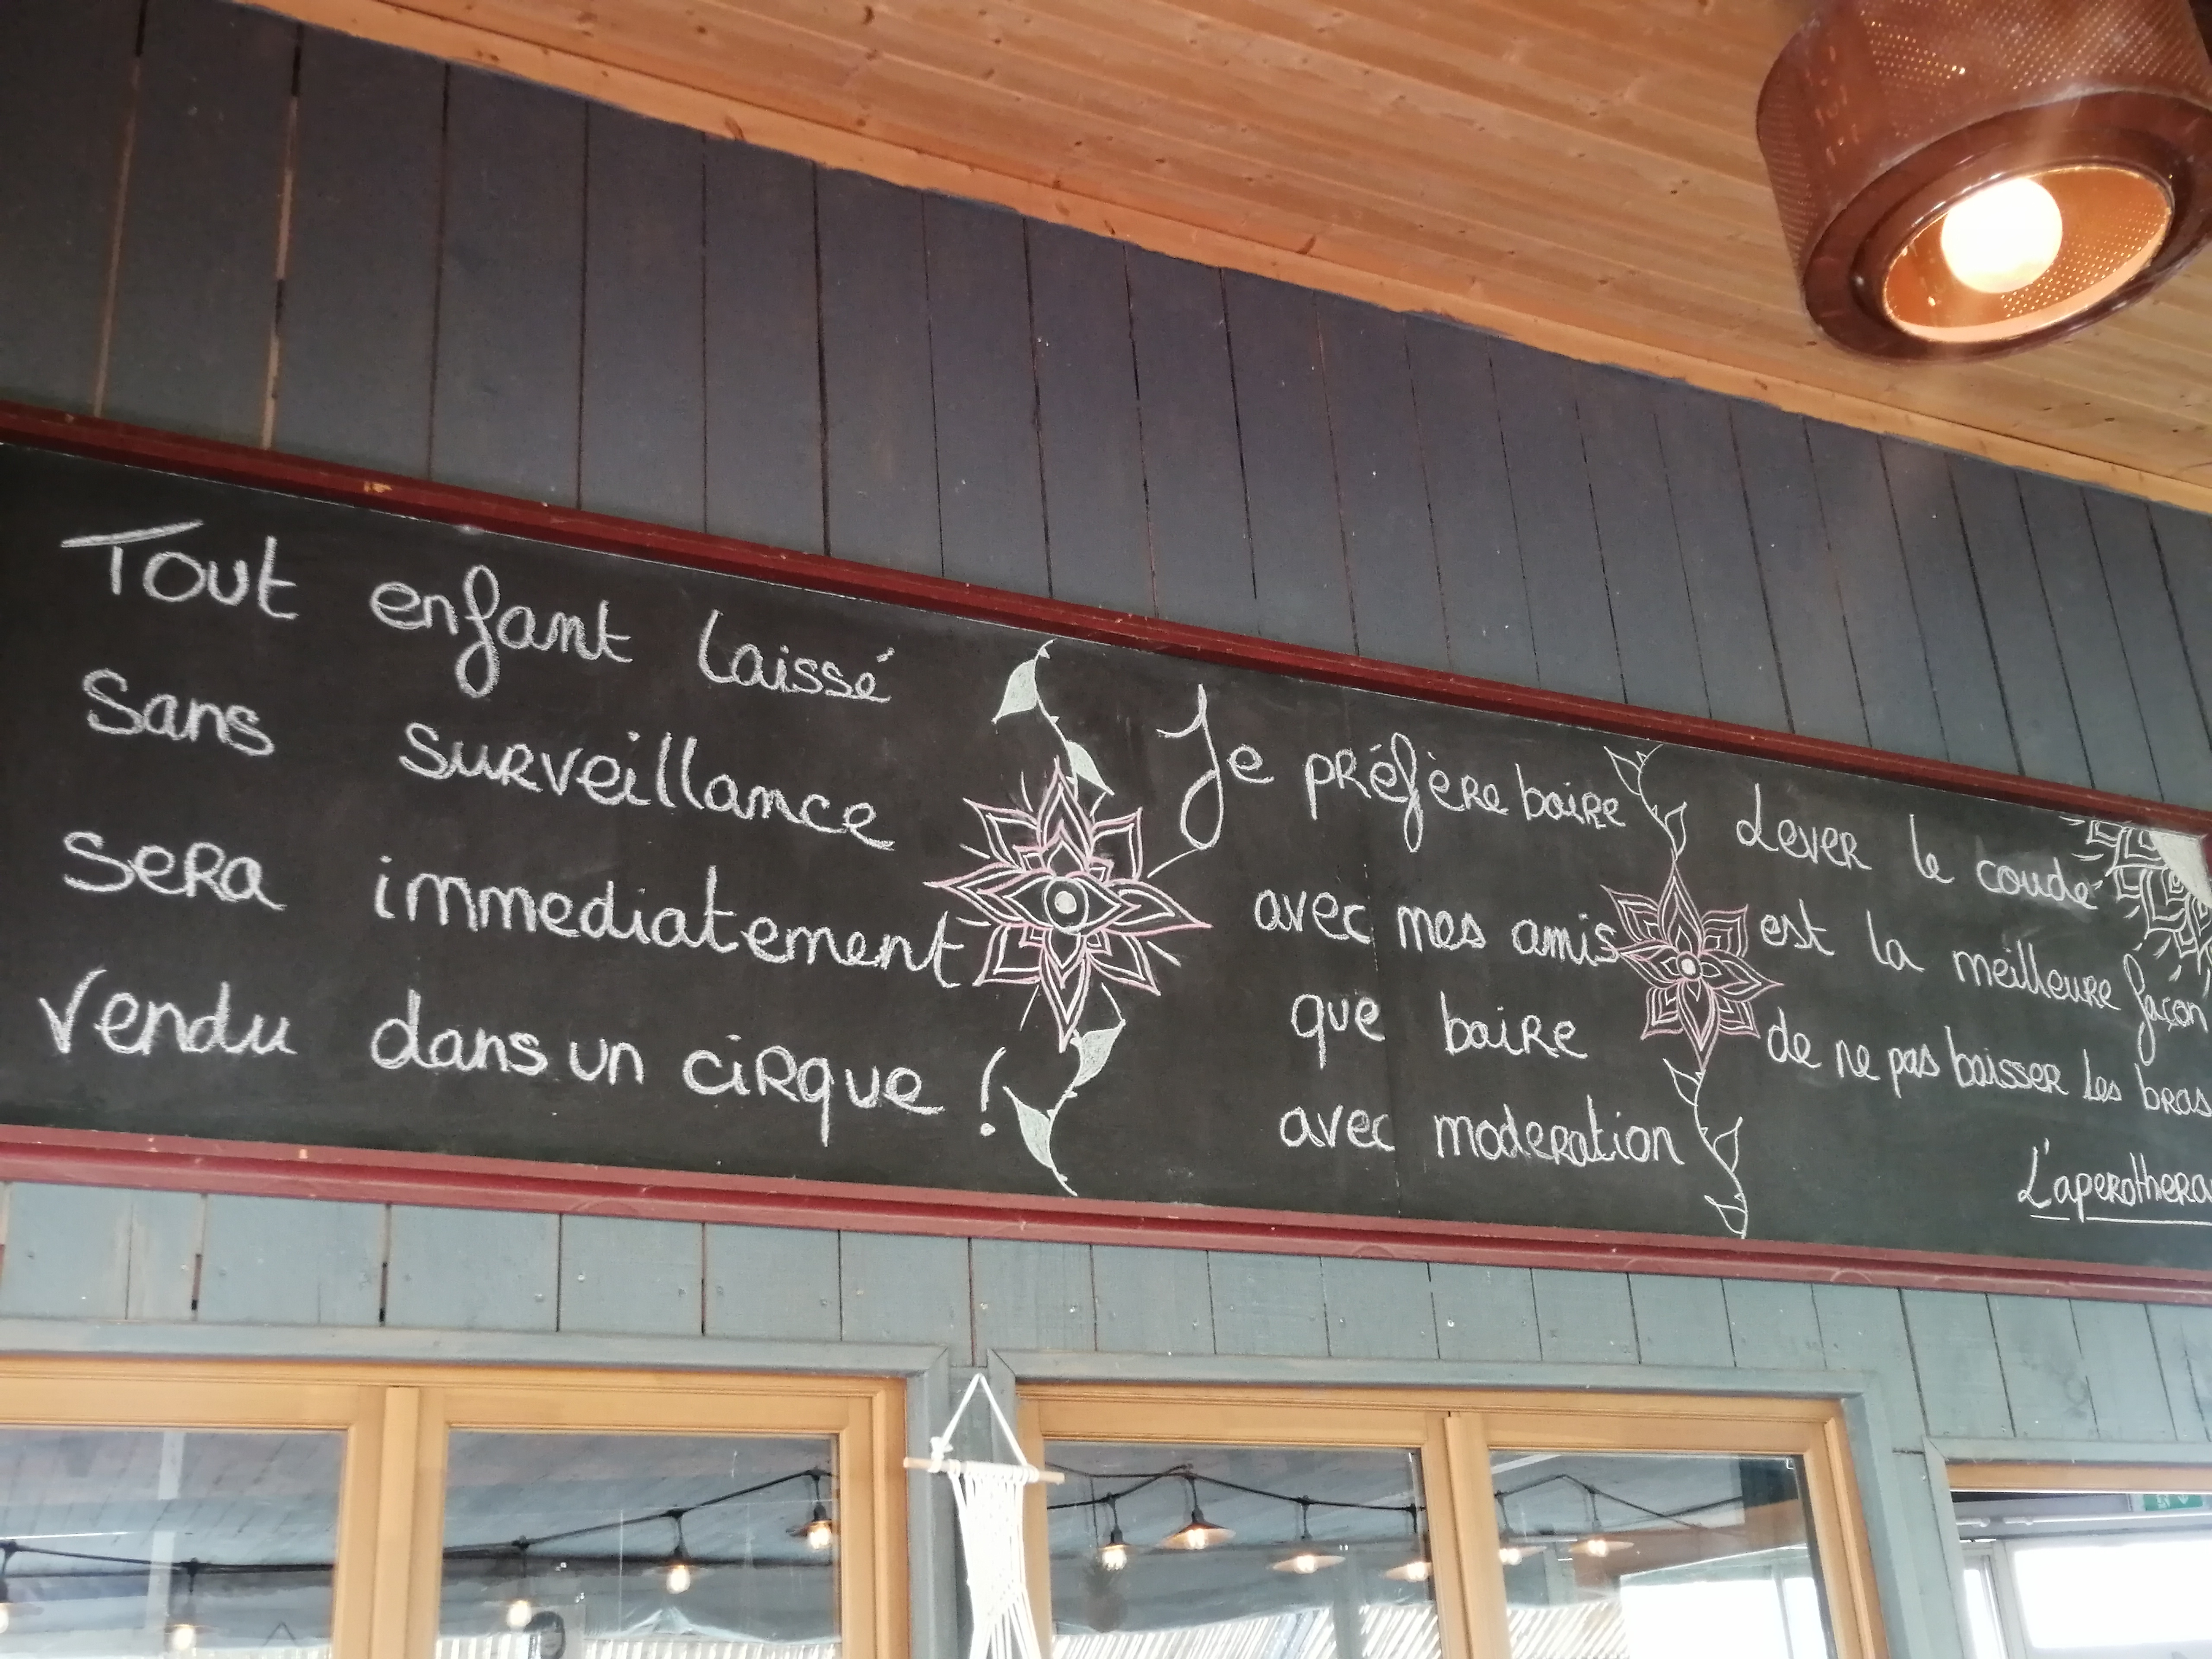 Tout enfant laissé
Sans surveillance
sera immediatement
Vendu dans un cirque !
Je préfère boire
avec mes amis
que boire
avec moderation
Lever le coude
est la meilleure façon
de ne pas baisser les bras